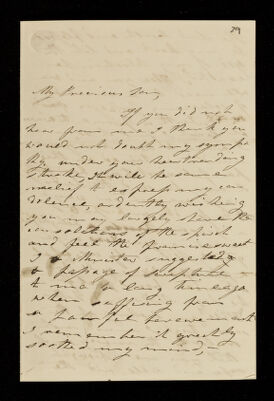 29
My Precious Son,
If you did not
hear from me I think you
would not doubt my sympa
thy, under your heartrending
stroke, it will be some
relief to express my con
dolence, and
you may largely share the
consolations of the spirit
and feel the promises sweet
a Minister suggested
a passage of Scripture
to me a long time ago
when suffering from
a painful bereavement
I remember it greatly
soothed my mind,